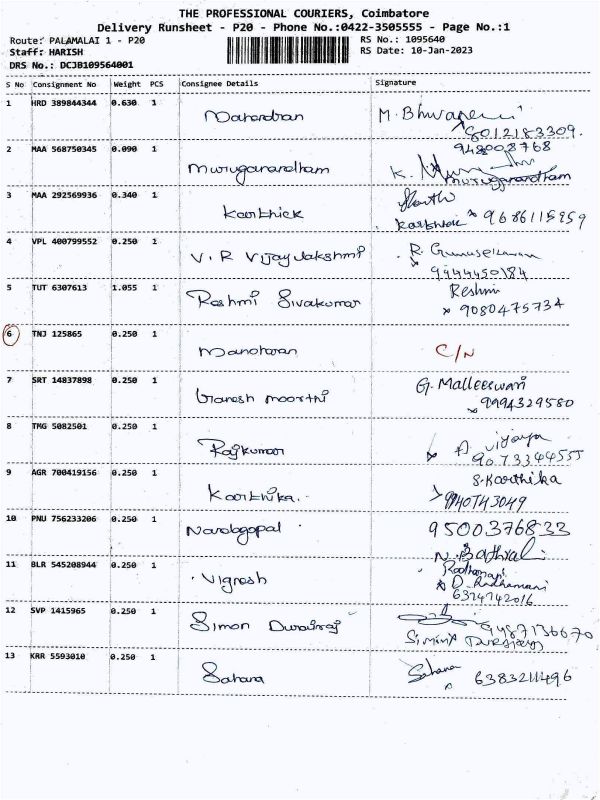 THE PROFESSIONAL COURIERS, Coimbatore
Delivery Runsheet - P20 - Phone No.:0422-3505555 - Page No.:1
Route: PALAMALAI 1 - P20 RS No.: 1095640
Staff: HARISH RS Date: 10-Jan-2023
DRS No.: DCJB109564001
S No Consignment No Weight PCS Consignee Details Signature
1 HRD 389844344 0.630 1 M. Bhuvaneswari
8012183309.
2 MAA 568750345 0.090 1 Muruganandham 948008768
K. Muruganandham
3 MAA 292569936 0.340 1 Karthick
Karthick 9686115259
4 VPL 400799552 0.250 1 V. R Vijayalakshmi R. Gunasekaran
9944450184
5 TUT 6307613 1.055 1 Reshmi Sivakumar Reshmi
9080475734
6 TNJ 125865 0.250 1 Manoharan C/N
7 SRT 14837898 0.250 1 Ganesh moorthi G. Malleeswari
9994329580
8 TMG 5082501 0.250 1 Rajkumar A. Vijaya
9073344555
9 AGR 700419156 0.250 1 Karthika. S. Karthika
9940743049
10 PNU 756233206 0.250 1 9500376833
11 BLR 545208944 0.250 1 Vignesh Radhamani
D. Radhamani
6374742016
12 SVP 1415965 0.250 1 Simon Durairaj 9487136670
13 KRR 5593010 0.250 1 Sahana Sahana 6383211496